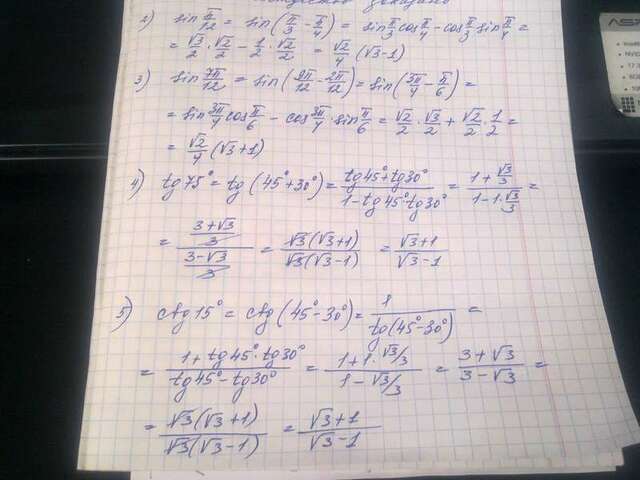 2) sin π/12 = sin(π/3 − π/4) = sin π/3 cos π/4 − cos π/3 sin π/4 =
= √3/2 · √2/2 − 1/2 · √2/2 = √2/4 (√3−1)
3) sin 7π/12 = sin(9π/12 − 2π/12) = sin(3π/4 − π/6) =
= sin 3π/4 cos π/6 − cos 3π/4 · sin π/6 = √2/2 · √3/2 + √2/2 · 1/2 =
= √2/4 (√3+1)
4) tg 75° = tg(45°+30°) = (tg45°+tg30°)/(1−tg45°·tg30°) = (1+√3/3)/(1−1·√3/3) =
= ((3+√3)/3)/((3−√3)/3) = √3(√3+1)/√3(√3−1) = (√3+1)/(√3−1)
5) ctg 15° = ctg(45°−30°) = 1/tg(45°−30°) =
= (1+tg45°·tg30°)/(tg45°−tg30°) = (1+1·√3/3)/(1−√3/3) = (3+√3)/(3−√3) =
= √3(√3+1)/√3(√3−1) = (√3+1)/(√3−1)